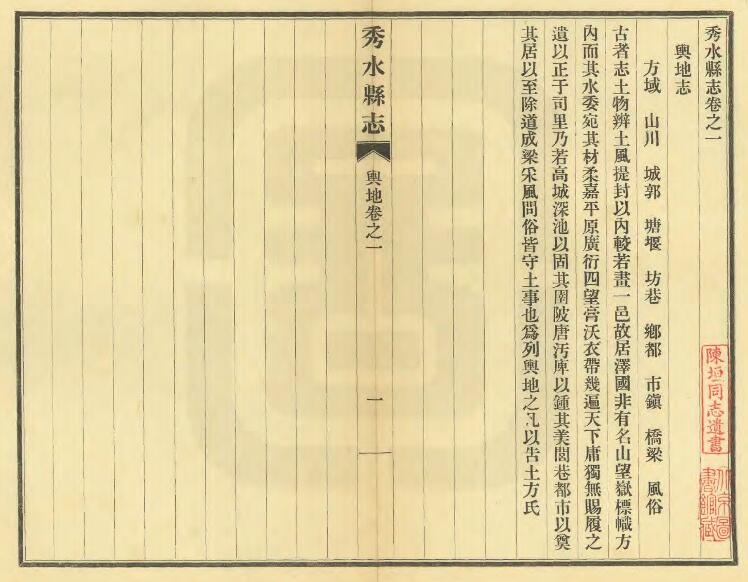 秀水縣志卷之一
輿地志
方域 山川 城郭 塘堰 坊巷 鄉都 市鎭 橋梁 風俗
古者志土物辨土風提封以內較若畫一邑故居澤國非有名山望嶽標幟方
內而其水委宛其材柔嘉平原廣衍四望膏沃衣帶幾遍天下庸獨無賜履之
遺以正于司里乃若高城深池以固其圉陂唐汚庳以鍾其美閭巷都市以奠
其居以至除道成梁采風問俗皆守土事也爲列輿地之凡以告土方氏
秀水縣志
輿地卷之一
一
陳垣同志遺書